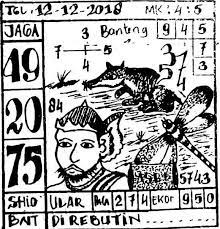 TGL : 12-12-2018 MK : 4 : 5
JAGA 3 Banteng 9 4 5
7 4 5 7
49 37 7
54 3
20 84
75 5743
SHIO ULAR 2 7 4 EKOR 9 5 0
BNT DIREBUTIN